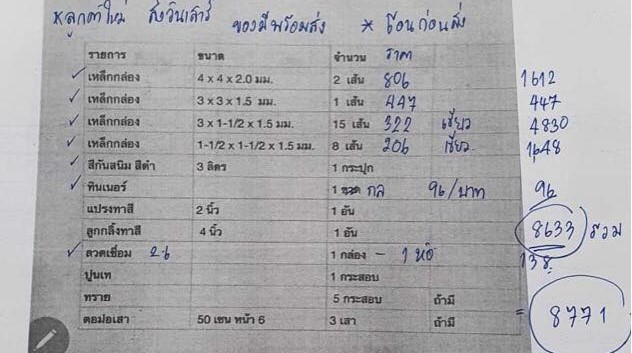 *ลูกค้าใหม่ ส่งวันเสาร์ ของมีพร้อมส่ง * โอนก่อนส่ง
รายการ ขนาด จำนวน ราคา
✓ เหล็กกล่อง 4 x 4 x 2.0 มม. 2 เส้น 806 1612
✓ เหล็กกล่อง 3 x 3 x 1.5 มม. 1 เส้น 447 447
✓ เหล็กกล่อง 3 x 1-1/2 x 1.5 มม. 15 เส้น 322 เขียว 4830
✓ เหล็กกล่อง 1-1/2 x 1-1/2 x 1.5 มม. 8 เส้น 206 เขียว 1,648
✓ สีกันสนิม สีดำ 3 ลิตร 1 กระปุก
✓ ทินเนอร์ 1 ขวด กล 96/บาท 96
แปรงทาสี 2 นิ้ว 1 อัน
ลูกกลิ้งทาสี 4 นิ้ว 1 อัน 8633 รวม
✓ ลวดเชื่อม 2.6 1 กล่อง - 1 ห่อ 138.
ปูนเท 1 กระสอบ
ทราย 5 กระสอบ ถ้ามี
ตอม่อเสา 50 เซน หน้า 6 3 เสา ถ้ามี = 8771